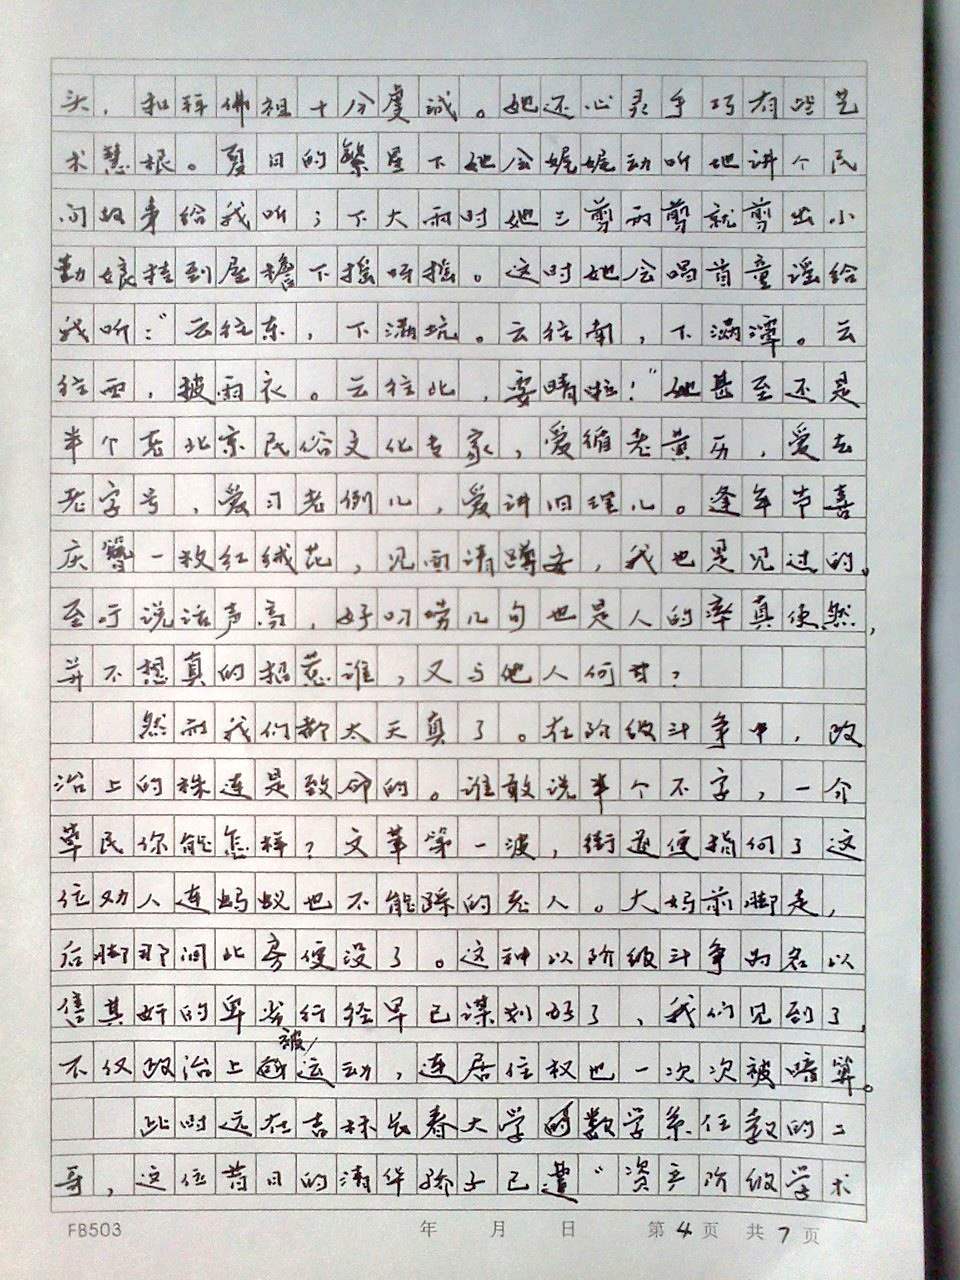 头，和拜佛祖十分虔诚。她还心灵手巧有些艺
术慧根。夏日的繁星下她会娓娓动听地讲个民
间故事给我听；下大雨时她三剪两剪就剪出小
勤娘挂到屋檐下摇呀摇。这时她会唱首童谣给
我听："云往东，下满坑。云往南，下满潭。云
往西，披雨衣。云往北，要晴啦！"她甚至还是
半个老北京民俗文化专家，爱循老黄历，爱去
老字号，爱习老例儿，爱讲旧理儿。逢年节喜
庆簪一枚红绒花，见面请蹲安，我也是见过的。
至于说话声高，好叨唠几句也是人的率真使然，
并不想真的招惹谁，又与他人何甘？
然而我们都太天真了。在阶级斗争中，政
治上的株连是致命的。谁敢说半个不字，一介
草民你能怎样？文革第一波，街道便指向了这
位劝人连蚂蚁也不能踩的老人。大妈前脚走，
后脚那间北房便没了。这种以阶级斗争为名以
售其奸的卑劣行径早已谋划好了，我们见到了，
不仅政治上被运动，连居住权也一次次被暗算。
此时远在吉林长春大学的数学系任教的二
哥，这位昔日的清华骄子已遭"资产阶级学术
FB503 年 月 日 第4页 共7页